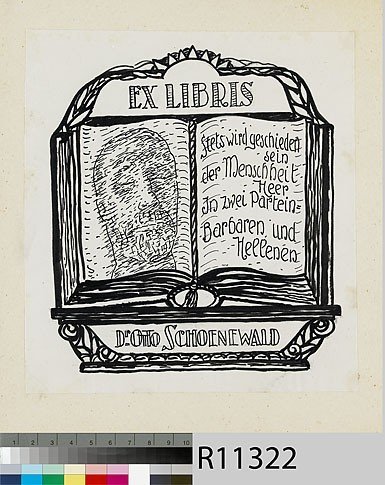 EX LIBRIS
Stets wird geschieden
sein
der Menschheit
Heer
In zwei Partein=
Barbaren und
Hellenen
Dr OTTO SCHOENEWALD
1 2 3 4 5 6 7 8 9 10
R11322